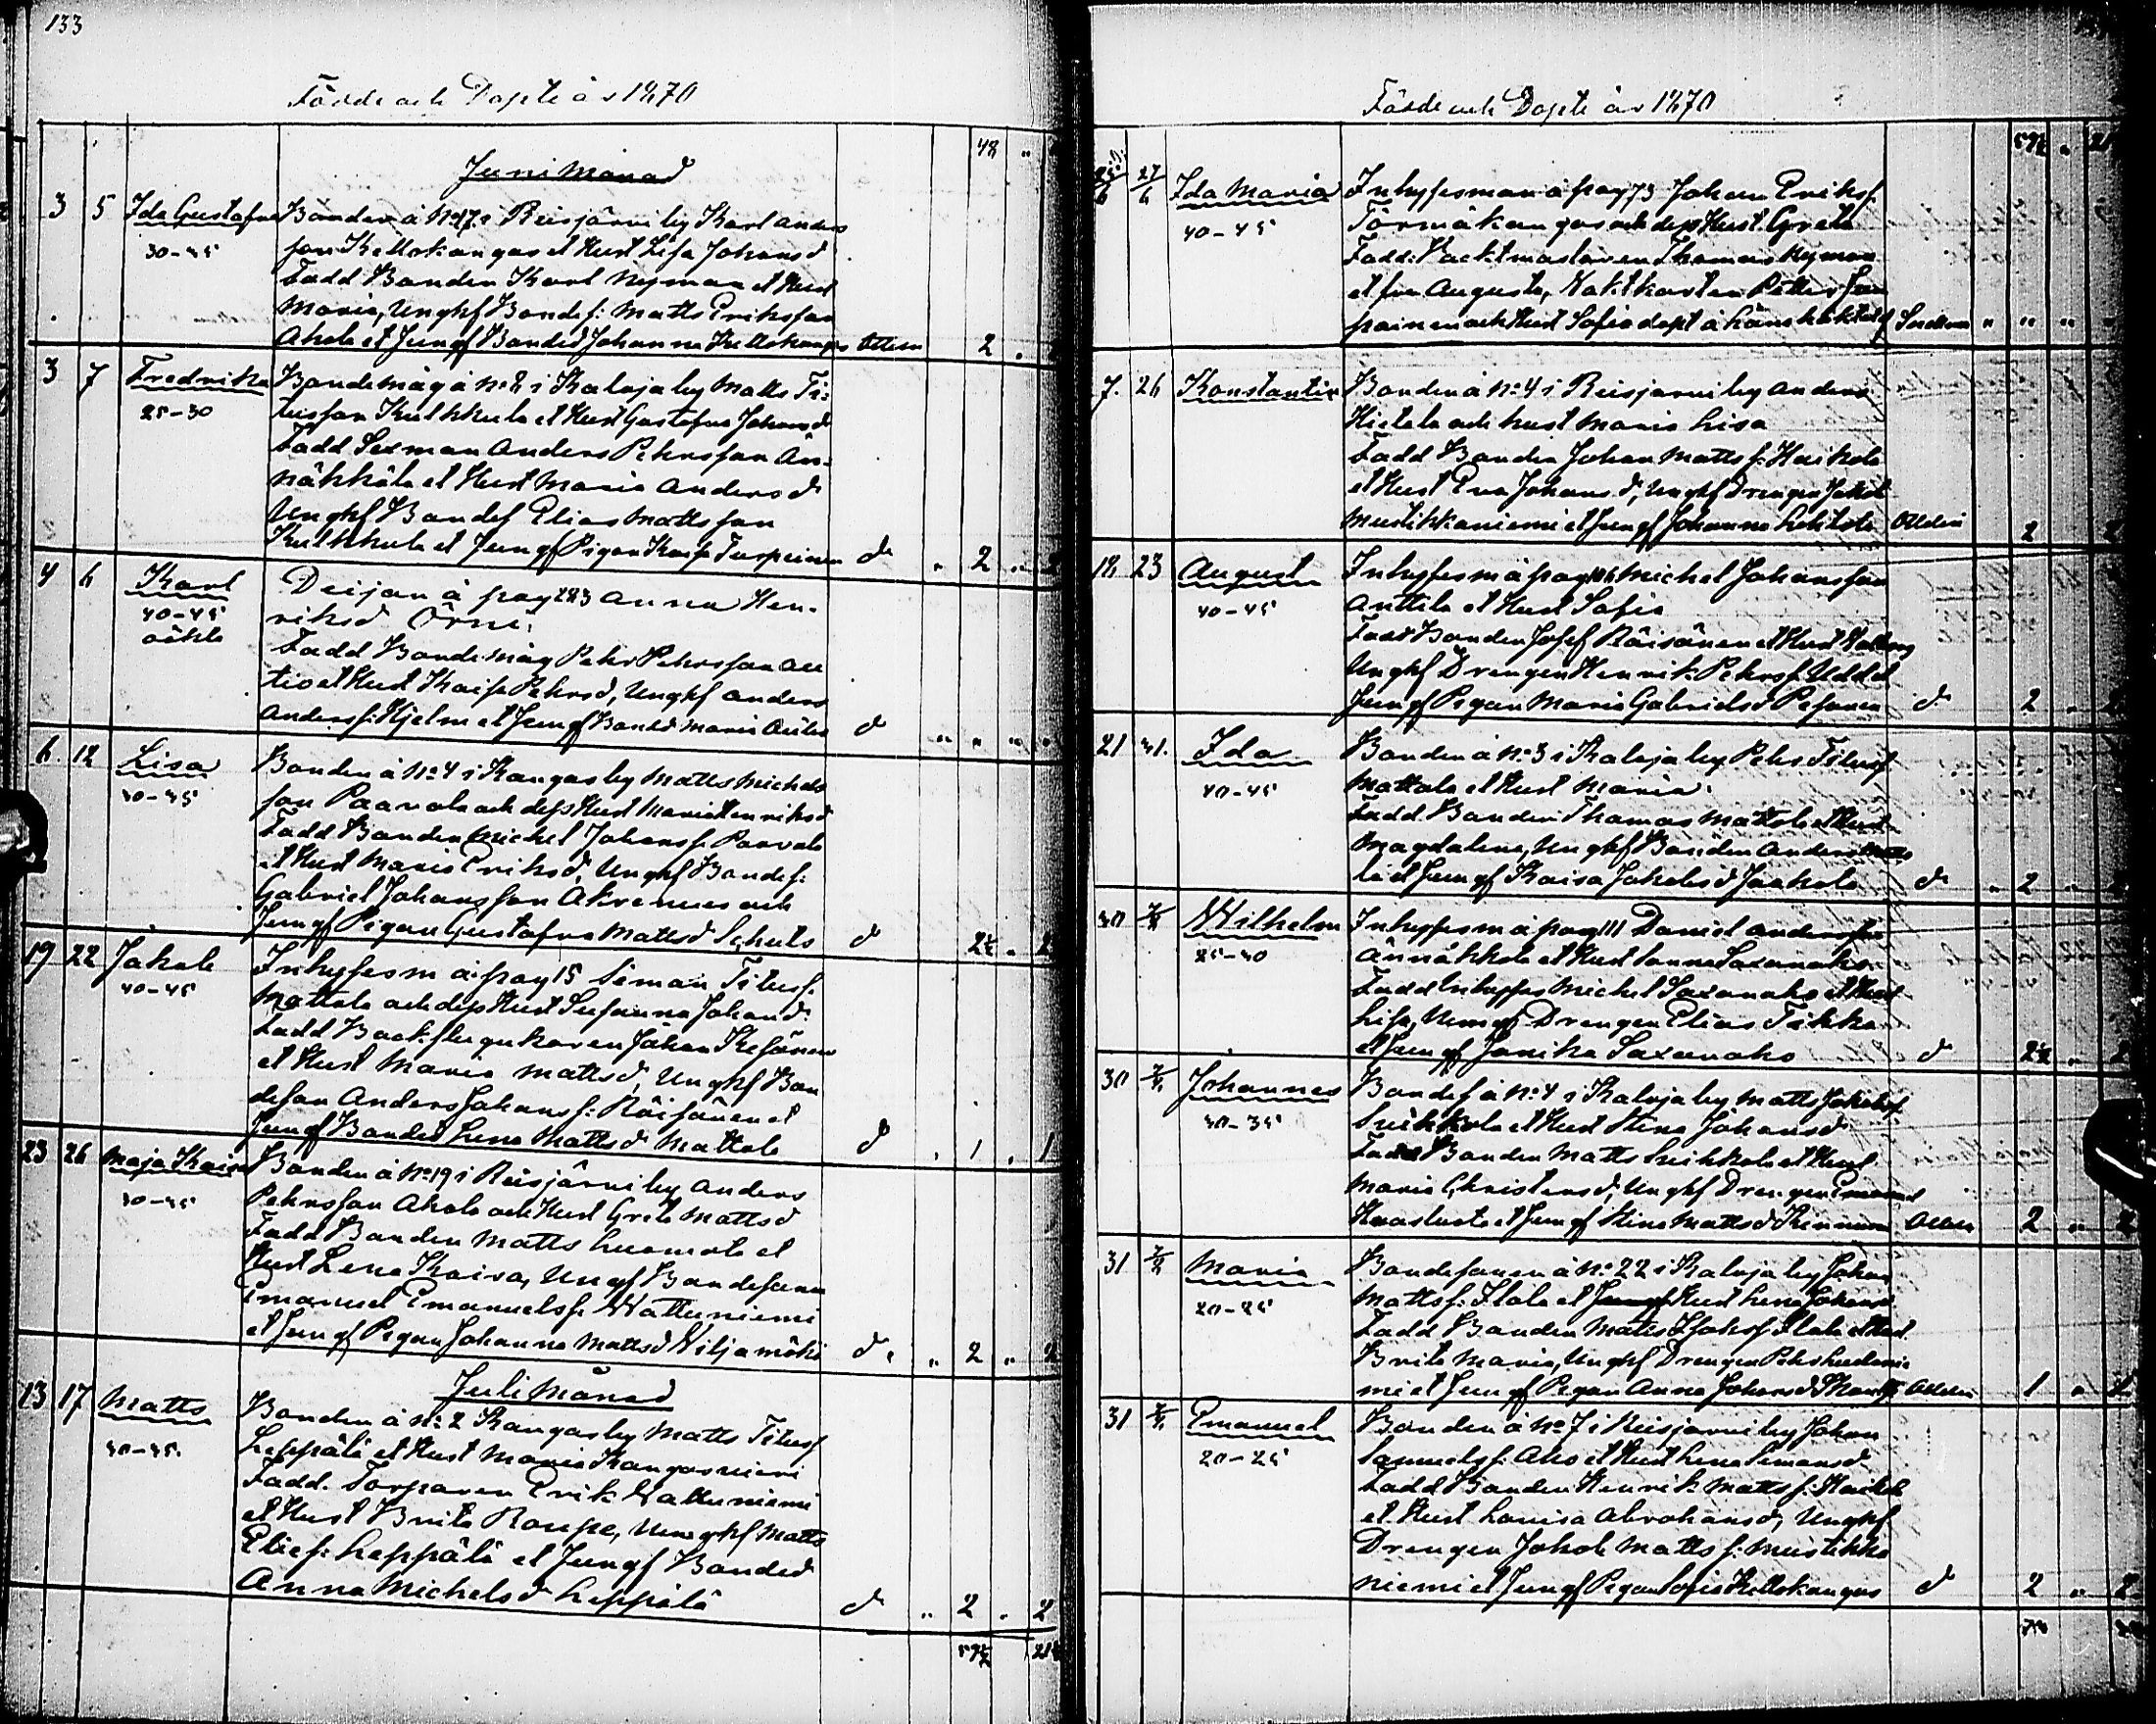 133
Födde och Döpte år 1870
48 "
Juni Månad
3 5 Ida Gustafva Bonden å No 17 i Reisjärvi by Karl Anders
30-35 son Kettokangas et Hust Lisa Johansd
Fadd Bonden Karl Nyman et Hust
Maria, Unghf Bondes: Matts Eriksson
Ahola et Jungf Bonded Johanna Kettokangas 2 "
3 7 Fredrika Bondemåg å No 8 i Kalaja by Matts Ti-
25-30 tusson Kulkkula et Hust Gustafva Johansd
Fadd Sexman Anders Pehrsson Än-
näkkälä et Hust Maria Andersd
Unghf Bondes Elias Mattsson
Kulkkula et Jungf Pigan Kaisa Turpeinen d " 2 "
4 6 Karl Deijan å pag 283 Anna Hen-
40-45 riksd Örni.
oäkta Fadd Bondemåg Pehr Pehrsson
et Hust Kaisa Pehrsd, Unghf Anders
Anderss: Hjelm et Jungf Bonded Maria d " " " "
6 12 Lisa Bonden å No 4 i Kangas by Matts Michels
son Paavola och dess Hust Maria Henriksd
Fadd Bonden Michel Johanss Paavola
et Hust Maria Eriksd, Unghf Bondes:
Gabriel Johansson Akrenius och
Jungf Pigan Gustafva Mattsd Schuts d 2½ " 2
19 22 Jakob Inhysesm å pag 15 Simon Tituss
40-45 Mattola och dess Hust Susanna Johansd
Fadd Backstugukaren Johan Kesänen
et Hust Maria Mattsd, Unghf Bon
deson Anders Johanss: Räisänen et
Jungf Bonded Lena Mattsd Mattola d " 1 " 1
23 26 Maja Kaisa Bonden å No 19 i Reisjärvi by Anders
Pehrsson Ahola och Hust Greta Mattsd
Fadd Bonden Matts Luomala et
Hust Lena Kaisa, Ungf Bondesonen
Emanuel Emanuelss: Wattuniemi
et Jungf Pigan Johanna Mattsd Kiljamäki d " 2 " 2
Juli Månad
13 17 Matts Bonden å No 2 Kangas by Matts Tituss
Leppälä et Hust Maria Kangasniemi
Fadd. Torparen Erik Wattuniemi
et Hust Brita Roupe, Unghf Matts
Elies: Leppälä et Jungf Bonded
Anna Michelsd Leppälä d " 2 " 2
59½ 21½
Födde och Döpte år 1870
59½ " 21
25/6 27/6 Ida Maria Inhysesman å pag 73 Johan Erikss.
40-45 Törmäkangas och dess Hust. Greta
Fadd: Vacktmästaren Thomas Nyman
et fru Augusta, Vaktkarlen Petter
och Hust Sofia döpt å " " " "
7. 26 Konstantin Bonden å No 4 i Reisjärvi by Anders
Hietala och Hust Maria Lisa
Fadd Bonden Johan Matts s: Haikola
et Hust Eva Johansd, Unghf Drengen Jakob
Mustikkaniemi et Jungf Johanna 2 2
18 23 August Inhysesm å pag 106 Michel Johansson
40-45 Anttila et Hust Sofia
Fadd Bonden Josef Räisänen et Hust
Unghf Drengen Henrik Pehrss: Udd et
Jungf Pigan Maria Gabrielsd Pesonen d 2 " 2
21 31. Ida Bonden å No 3 i Kalaja by Pehr Tituss
40-45 Mattola et Hust Maria.
Fadd Bonden Thomas Mattola et Hust
Magdalena, Unghf Bonden Anders
et Jungf Kaisa Jakobsd Jaakola d " 2 "
30 7/8 Wilhelm Inhysesm å pag 111 Daniel Andersson
25-30 Ännäkkälä et Hust Saxanaho.
Fadd Inhyses Michel Saxanaho et Hust
Lisa, Ungf Drengen Elias Tikka
et Jungf Janika Saxanaho d 2½ "
30 7/8 Johannes Bondes å No 4 i Kalaja by Matts Jakobss
30-35 et Hust Stina Johansd
Fadd Bonden Matts et Hust
Maria Christersd, Unghf Drengen Emanuel
et Jungf Stina Mattsd Kinnunen 2 "
31 Maria Bondesonen å No 22 i Kalaja by Johan
Mattss: Ilola et Hust Lena Johansd
Fadd Bonden Matts Ilola et Hust
Brita Maria, Unghf Drengen Pehr
et Jungf Pigan Anna Johansd 1 "
31 Emanuel Bonden å No 7 i Reisjärvi by Johan
20-25 Samuelss: Aho et Hust Lena Simonsd
Fadd Bonden Henrik Matts s:
et Hust Lovisa Abrahamsd, Unghf
Drengen Jakob Matts s: Mustikka
niemi et Jungf Pigan Sofia Kettokangas d 2 " 2